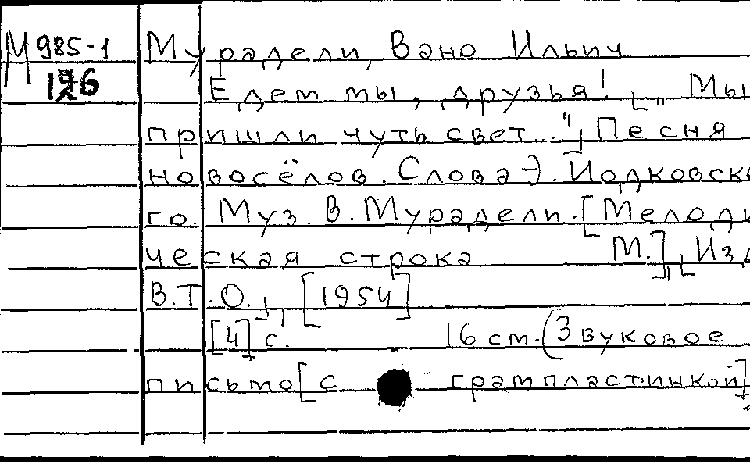 М 985-1 Мурадели, Вано Ильич
196 Едем мы, друзья! [„Мы
пришли чуть свет..."] Песня
новосёлов. Слова Э. Иодковско
го. Муз. В. Мурадели. [Мелоди
ческая строка М.], Изд
В.Т.О., [1954]
[4] с. 16 см. (Звуковое
письмо [с грампластинкой]